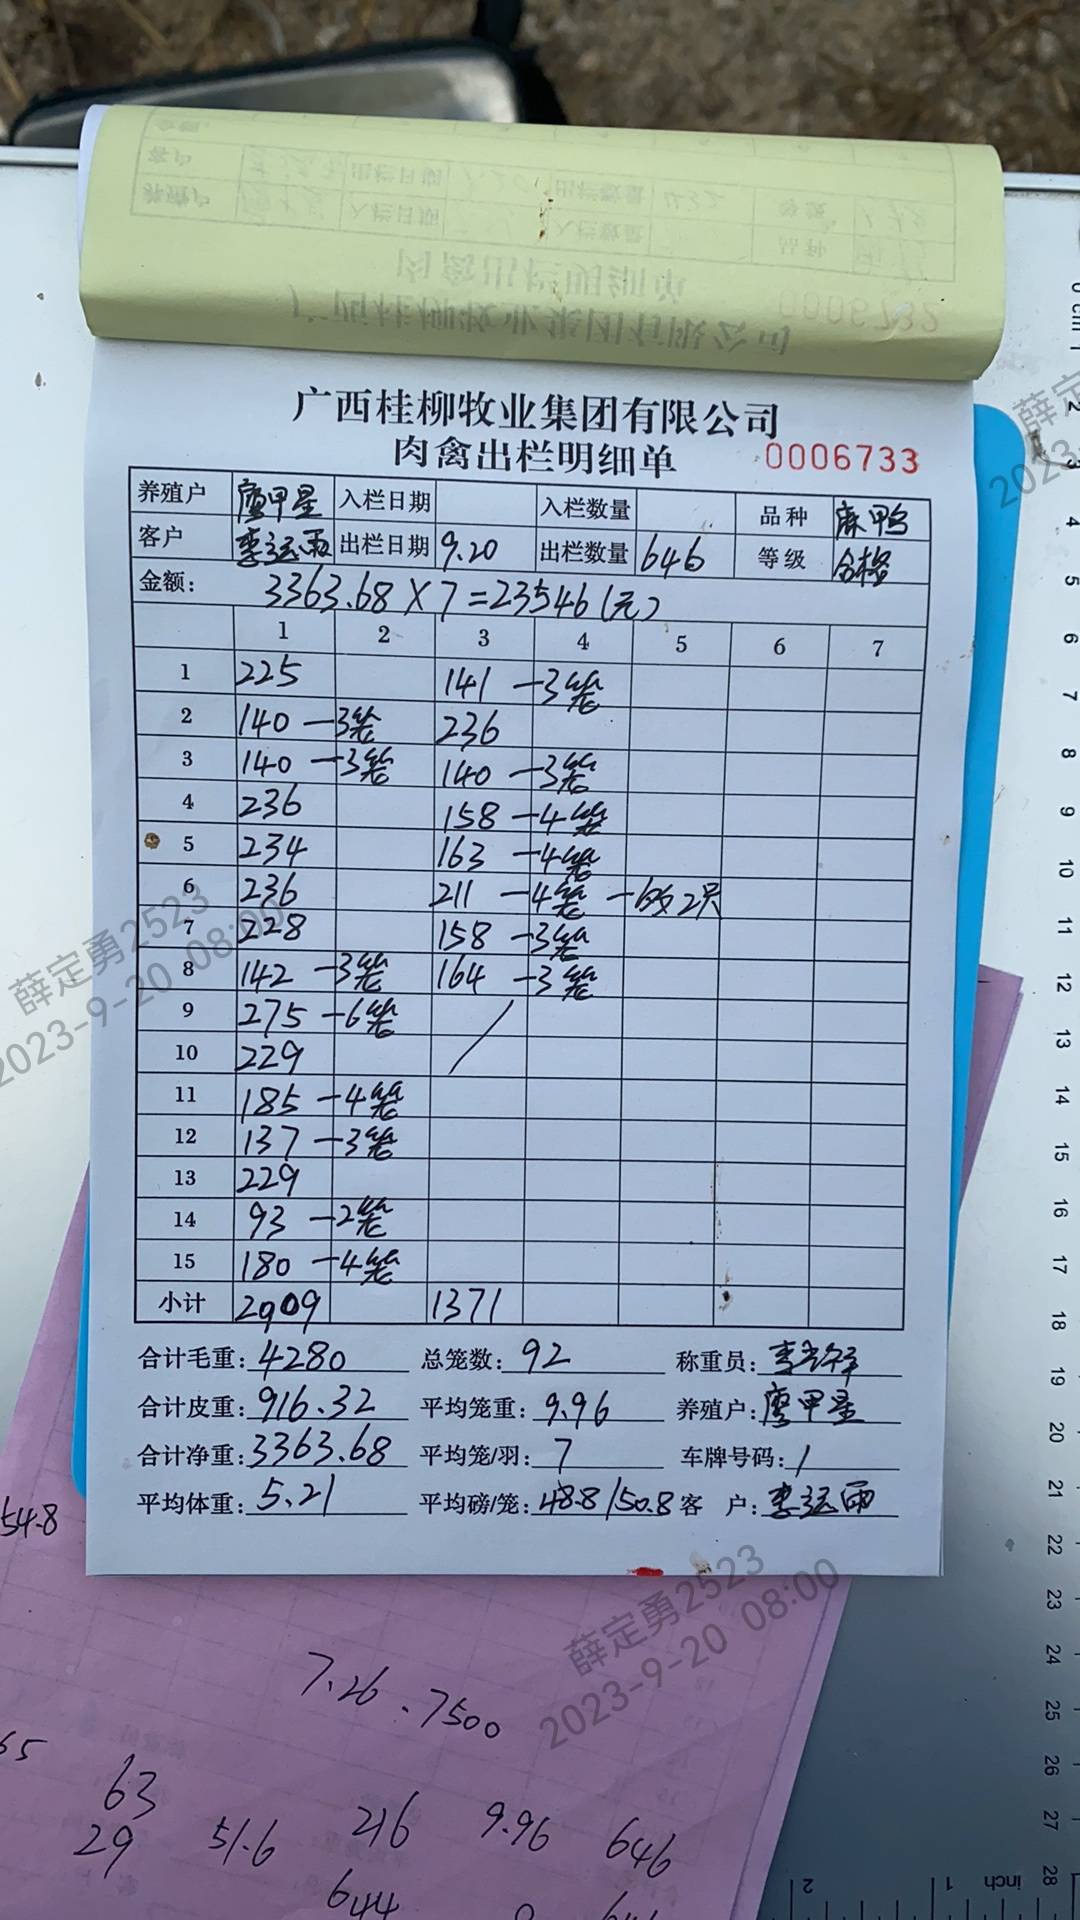 广西桂柳牧业集团有限公司
肉禽出栏明细单 0006733
养殖户 廖甲星 入栏日期 入栏数量 品种 麻鸭
客户 李运雨 出栏日期 9.20 出栏数量 646 等级 合格
金额: 3363.68×7=23546(元)
1 2 3 4 5 6 7
1 225 141 -3笼
2 140 -3笼 236
3 140 -3笼 140 -3笼
4 236 158 -4笼
5 234 163 -4笼
6 236 211 -4笼 2只
7 228 158 -3笼
8 142 -3笼 164 -3笼
9 275 -6笼
10 229
11 185 -4笼
12 137 -3笼
13 229
14 93 -2笼
15 180 -4笼
小计 2909 1371
合计毛重: 4280 总笼数: 92 称重员:
合计皮重: 916.32 平均笼重: 9.96 养殖户: 廖甲星
合计净重: 3363.68 平均笼/羽: 7 车牌号码: /
平均体重: 5.21 平均磅/笼: 48.8/50.8 客 户: 李运雨
54.8
7.26 . 7500
65
63
29 51.6 216 9.96 646
644
薛定勇2523
2023-9-20 08:00
薛定勇2523
2023-9-20 08:00